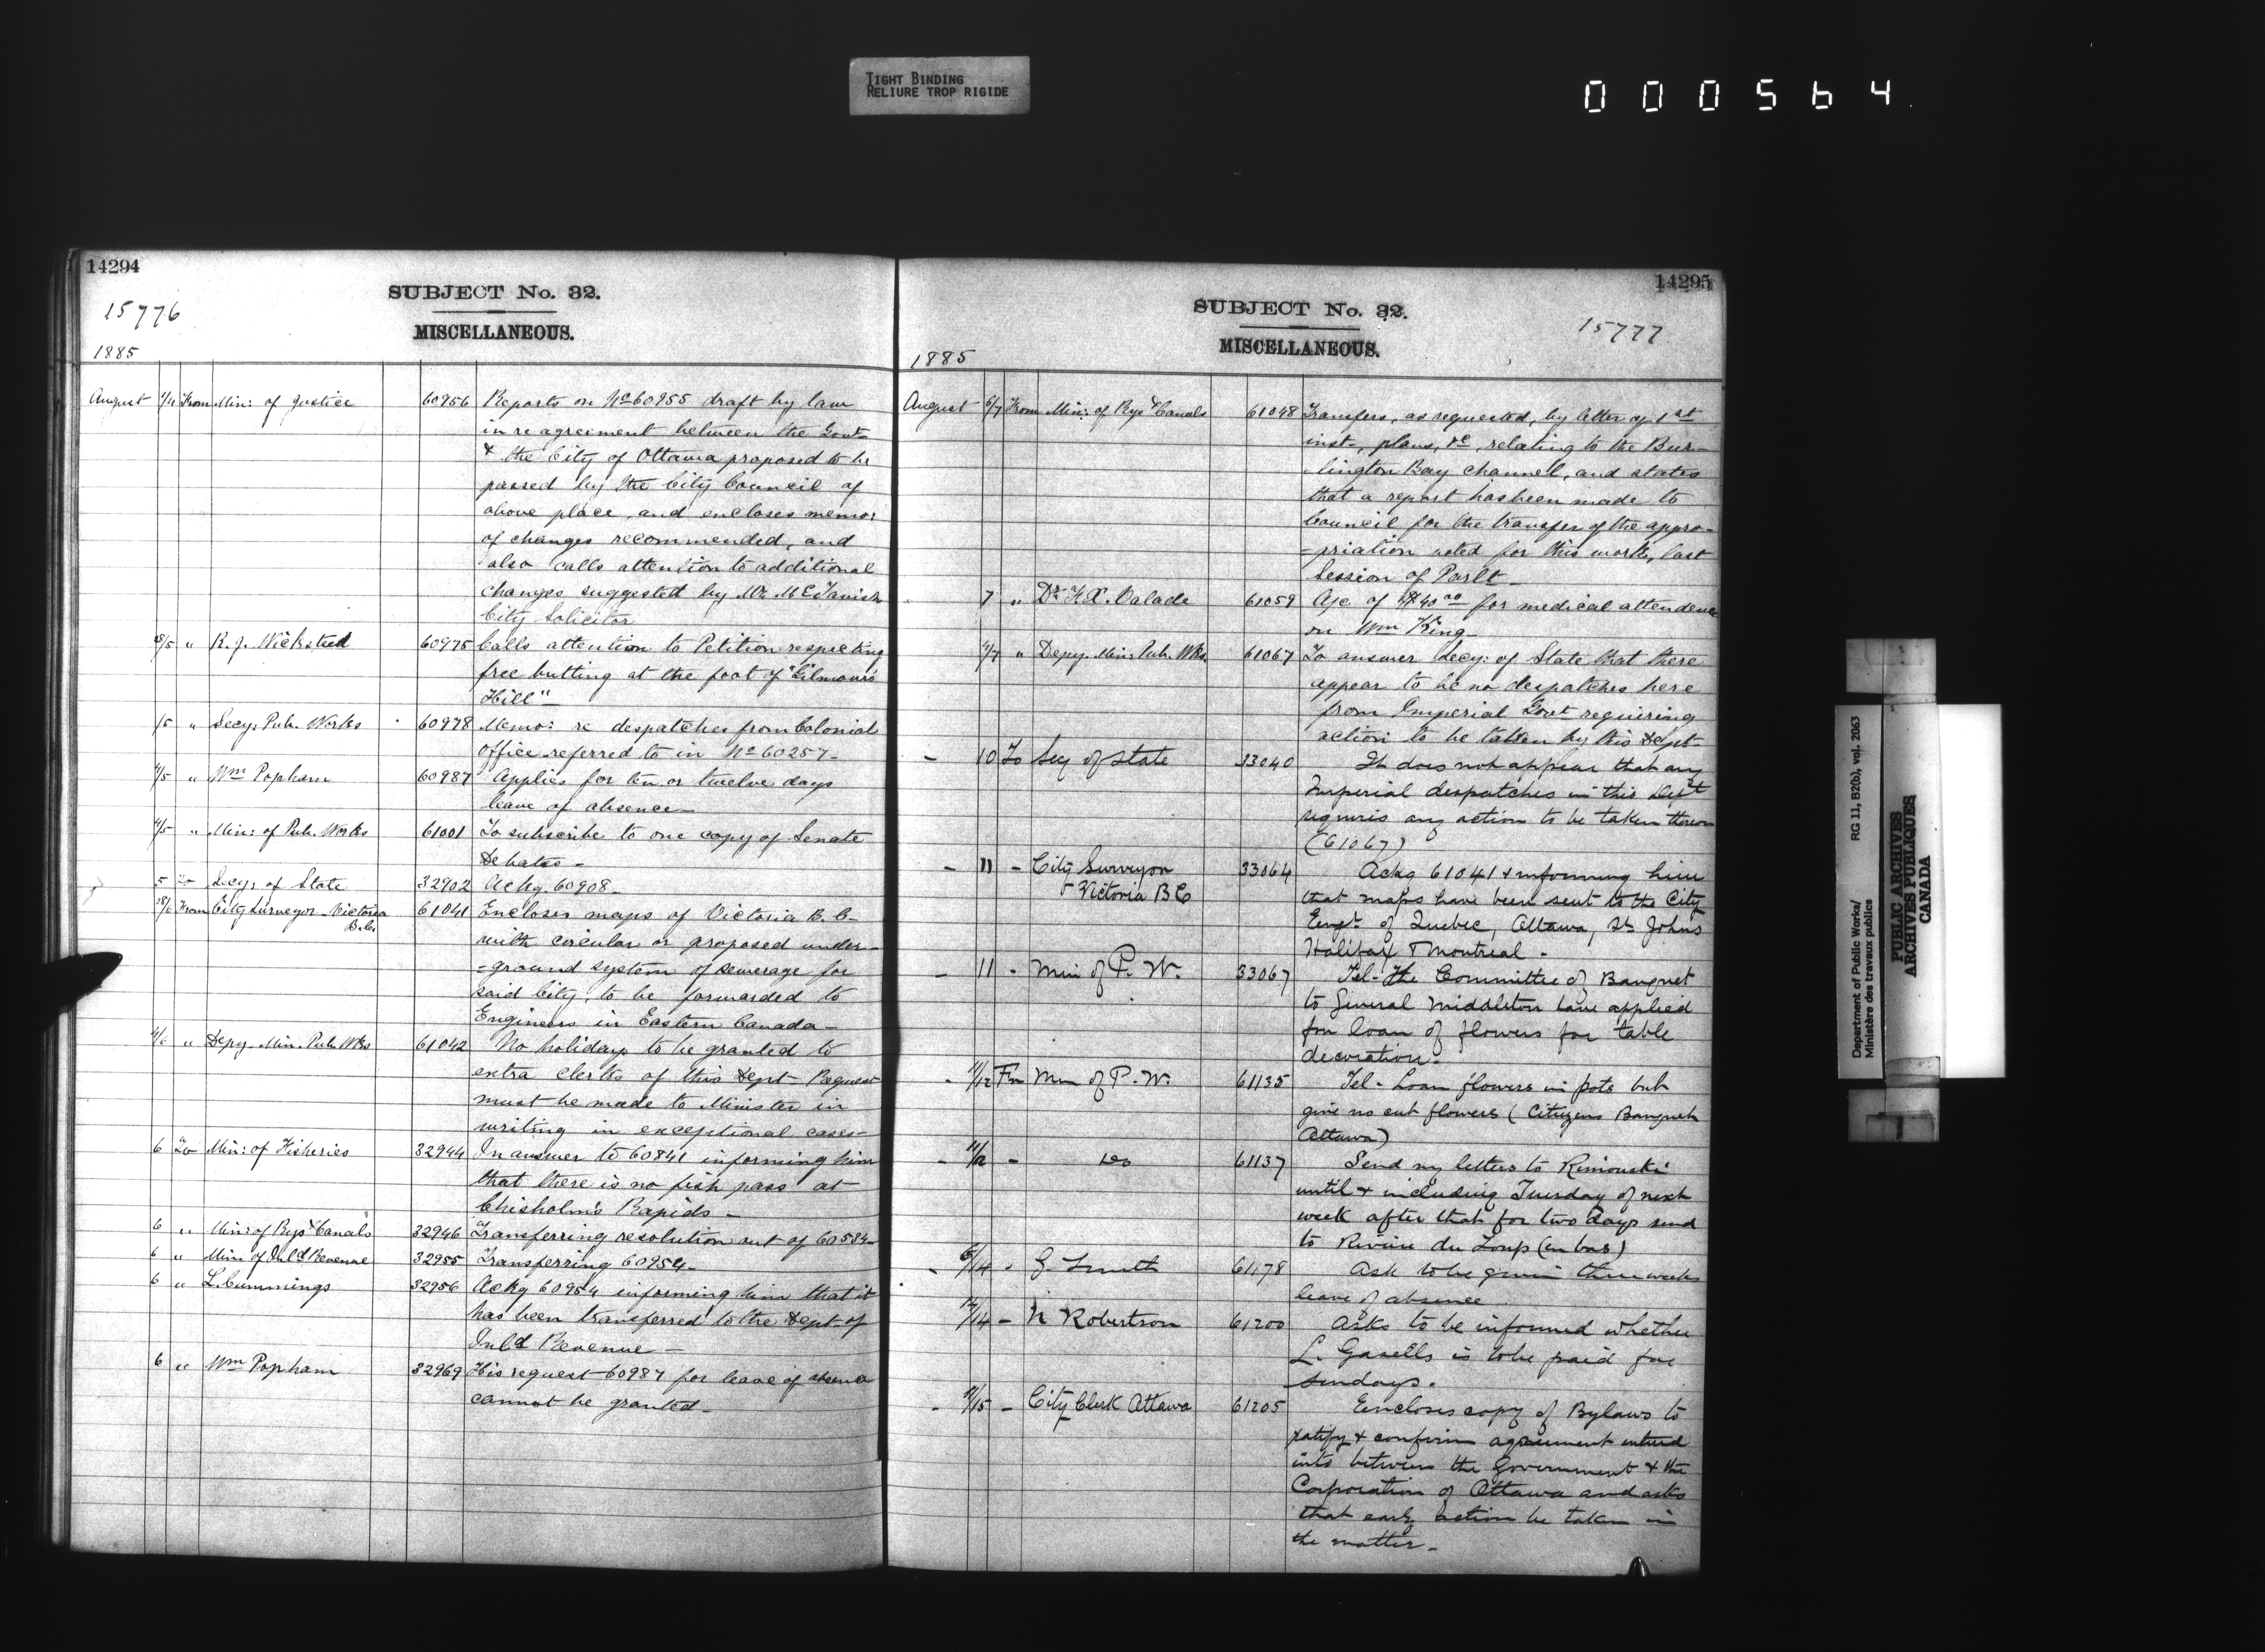 TIGHT BINDING
RELIURE TROP RIGIDE
000564
14294
SUBJECT No. 32.
15776
MISCELLANEOUS.
1885
August 1/4 From Min: of Justice 60956 Reports on No 60955 draft by law
in re agreement between the Govt
& the City of Ottawa proposed to be
passed by the City Council of
above place, and encloses memo:
of changes recommended, and
also calls attention to additional
changes suggested by Mr McTavish
City Solicitor
28/5 " R. J. Wicksteed 60975 Calls attention to Petition respecting
free butting at the foot of "Gilmour's
Hill"
1/5 " Secy. Pub. Works 60978 Memo: re despatches from Colonial
Office referred to in No 60257-
4/5 " Wm Popham 60987 Applies for ten or twelve days
leave of absence-
4/5 " Min: of Pub. Works 61001 To subscribe to one copy of Senate
Debates-
5 To Secy. of State 32902 Ackg. 60908-
28/6 From City Surveyor Victoria 61041 Encloses maps of Victoria B. C-
B.C.
with circular or proposed under-
=ground system of sewerage for
said City, to be forwarded to
Engineers in Eastern Canada-
4/6 " Depy. Min. Pub. Wks 61042 No holidays to be granted to
extra clerks of this Dept- Request
must be made to Minister in
writing in exceptional cases-
6 To Min: of Fisheries 32944 In answer to 60841 informing him
that there is no fish pass at
Chisholm's Rapids-
6 " Min: of Rys & Canals 32946 Transferring resolution out of 60584-
6 " Min. of Inld Revenue 32955 Transferring 60954-
6 " L. Cummings 32956 Ackg 60954 informing him that it
has been transferred to the Dept of
Inld Revenue-
6 " Wm Popham 32969 His request 60987 for leave of absence
cannot be granted-
14295
SUBJECT No. 32.
15777
MISCELLANEOUS.
1885
August 6/7 From Min: of Rys & Canals 61048 Transfers, as requested, by letter of 1st
inst-, plans, &c, relating to the Bur-
lington Bay Channel, and states
that a report has been made to
Council for the transfer of the appro-
=priation voted for this work, last
Session of Parlt-
7 " Dr F. X. Valade 61059 A/c. of $40.00 for medical attendence
on Wm King-
4/7 " Depy. Min: Pub. Wks. 61067 To answer Secy: of State that there
appear to be no despatches here
from Imperial Govt requiring
action to be taken by this Dept-
- 10 To Secy of State 33040 It does not appear that any
Imperial despatches in this Dept
requiris any action to be taken thereon
(61067)
- 11 - City Surveyor 33064 Ackg 61041 & informing him
Victoria BC
that maps have been sent to the City
Engr of Quebec, Ottawa, St Johns
Halifax & Montreal-
- 11 - Min of P. W. 33067 Tel- The Committee of Banquet
to General Middleton have applied
for loan of flowers for table
decoration-
- 11/12 Fm Min of P. W. 61135 Tel- Loan flowers in pots but
give no cut flowers (Citizens Banquet
Ottawa)
- 11/12 - do 61137 Send my letters to Rimouski
until & including Tuesday of next
week after that for two days send
to Riviere du Loup (en bas)
- 6/14 - G. Smith 61178 Ask to be given three weeks
leave of absence
12/14 - N Robertson 61200 Asks to be informed whether
L. Gazells is to be paid for
Sundays.
- 11/15 - City Clerk Ottawa 61205 Encloses copy of Bylaws to
ratify & confirm agreement entered
into between the Government & the
Corporation of Ottawa and asks
that early action be taken in
the matter-
Department of Public Works/ RG 11, B2(b), vol. 2063
Ministère des travaux publics
PUBLIC ARCHIVES
ARCHIVES PUBLIQUES
CANADA